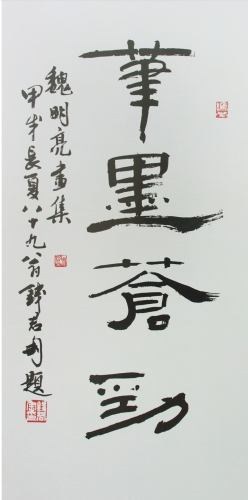 筆墨蒼勁
魏明亮畫集
甲戌長夏八十九翁錢君匋題